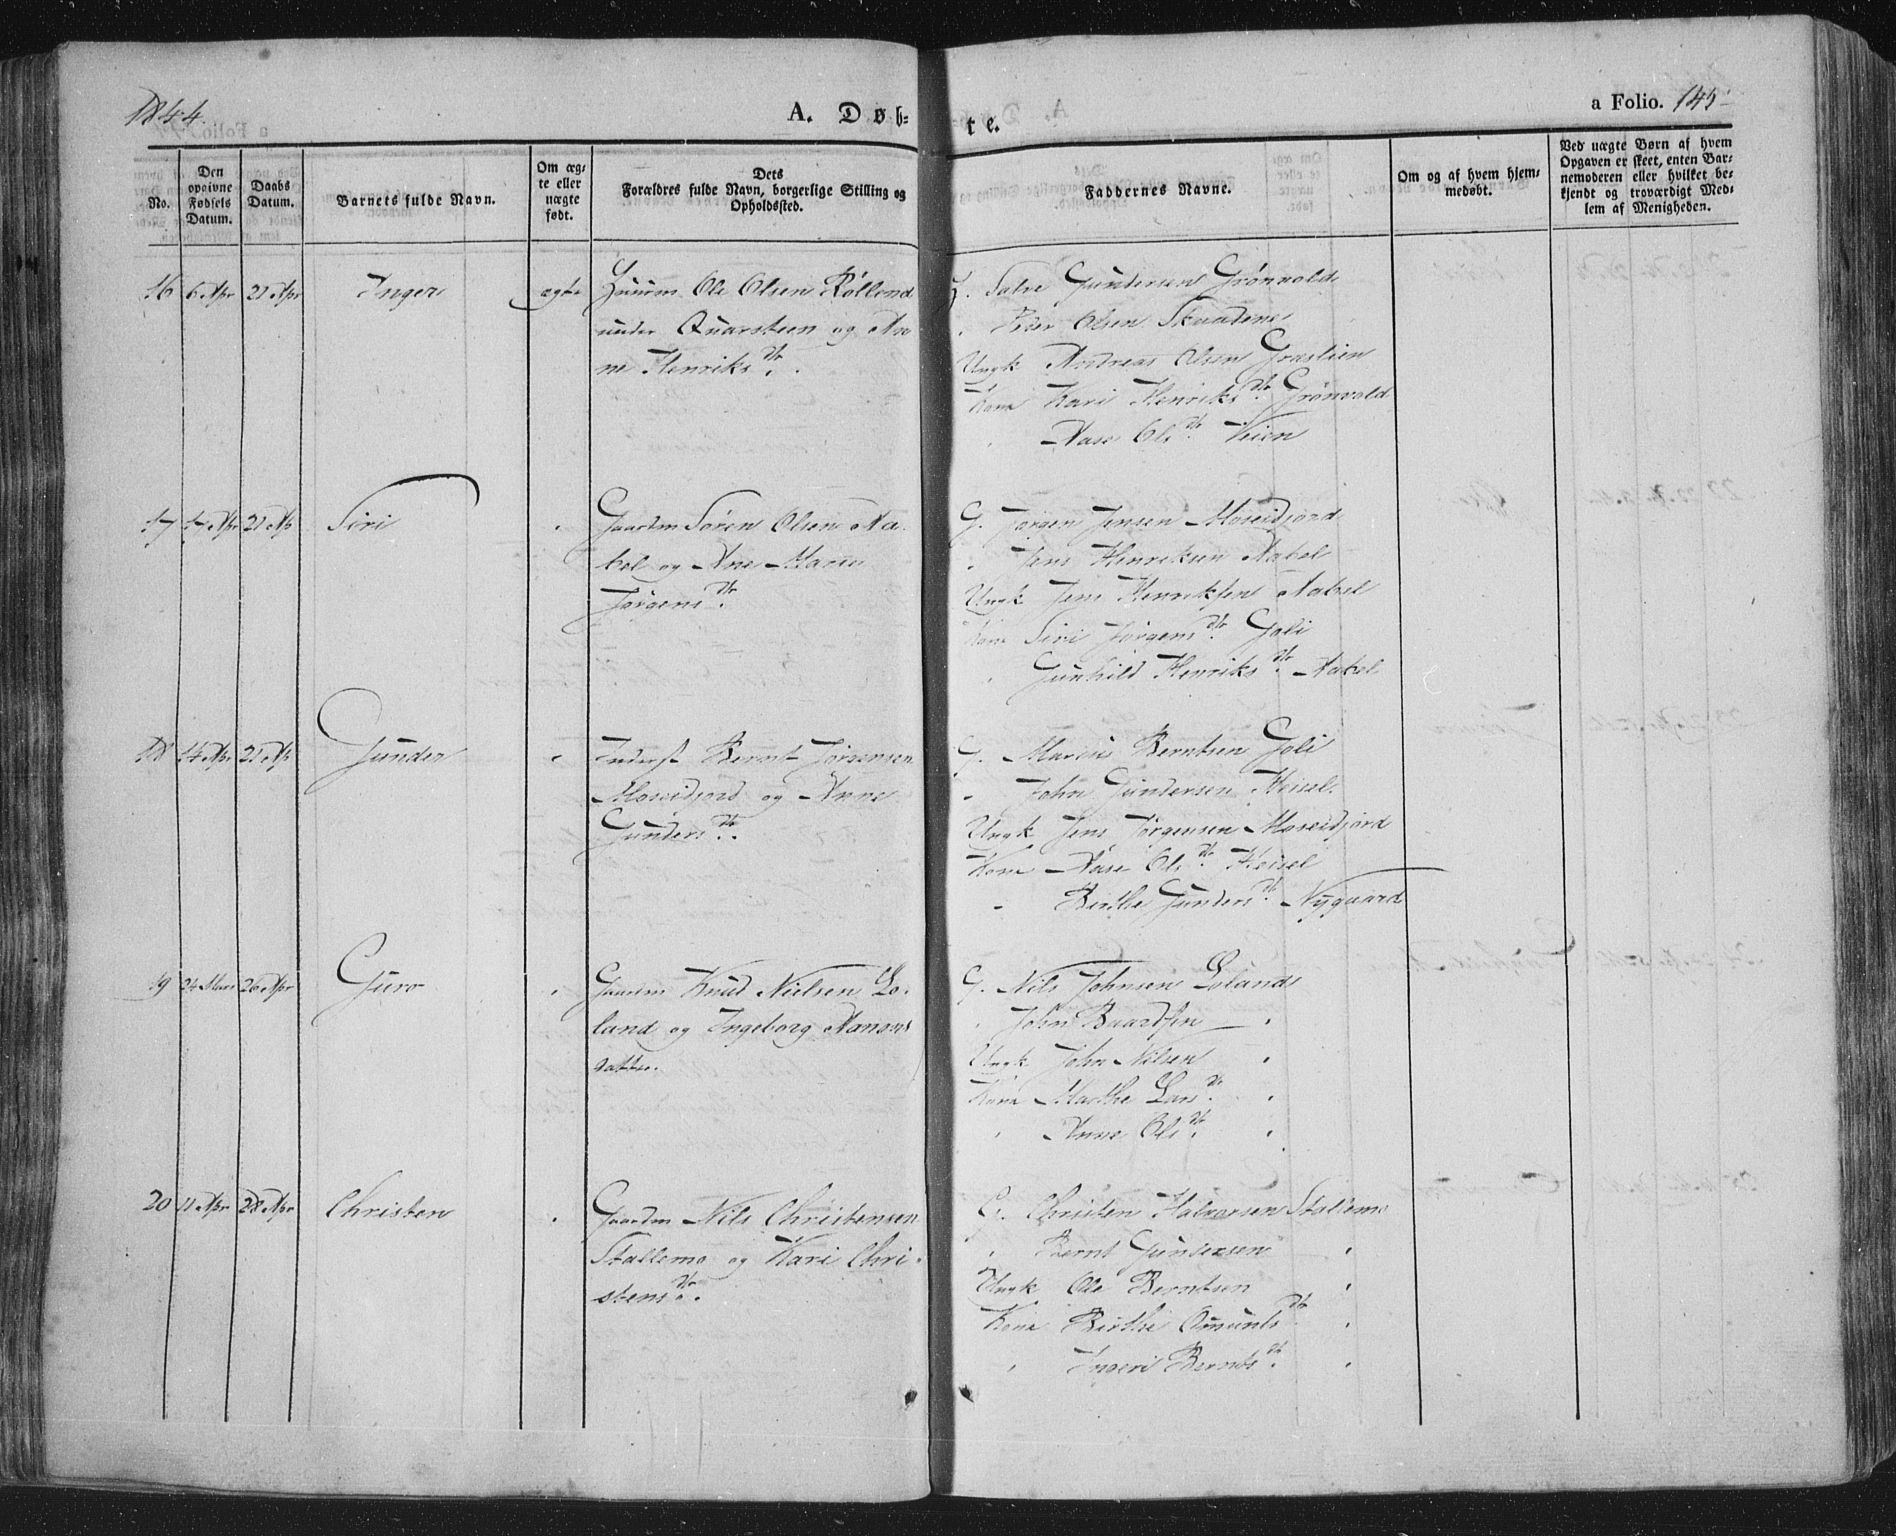 1844.
A. Døb=
te.
a Folio. 145
No.
Den opgivne Fødsels Datum.
Daabs Datum.
Barnets fulde Navn.
Om æg= te eller uægte født.
Dets Forældres fulde Navn, borgerlige Stilling og Opholdssted.
Faddernes Navne.
Om og af hvem hjem= medøbt.
Ved uægte Børn af hvem Opgaven er skeet, enten Bar= nemoderen eller hvilket be= kjendt og troværdigt Med= lem af Menigheden.
16 6 Apr 21 Apr Inger ægte
Huusm Ole Olsen Røllend
under Quarsteen og An
ne Henriksdtr.
Salve Gundersen Grønvold
Peder Olsen
Ungk Andreas Olsen Græslien
Kone Kari Henriksdtr. Grønvold
Aase Olsdtr. Veien
17 17 Apr 21 Ap Siri
Gaardm Sören Olsen Aa=
bel og Ane Marie
Jörgensdtr.
G. Jörgen Jensen Moseidjord
Jens Henriksen Aabel
Ungk Jens Henriksen Aabel
Kone Siri Jörgensdtr. Goli
Gunhild Henriksdtr. Aabel
18 14 Apr 21 Ap Gunder
Inderst Bernt Jörgensen
Moseidjord og Anne
Gundersdtr.
G. Berntsen Goli
John Gundersen Heisel
Ungk Jens Jörgensen Moseidjord
Kone Aase Olsdtr. Heisel
Birthe Gundersdtr. Nygaard
19 24 Mars 26 Apr Guro
Gaardm Knud Nielsen Lo=
land og Ingeborg Aanons
datter.
G. Nils Johnsen Lolands
John Baardsen
Ungk John Nilsen
Kone Marthe Larsdtr.
Anne Olsdtr.
20 11 Apr 28 Apr Christen
Gaardm Nils Christensen
Stallemo og Kari Chri=
stensdtr.
G. Christen Halvorsen Stallemo
Bernt Gundersen
Ungk Ole Berntsen
Kone Birthe Omundsdtr.
Ingeri Berntsdtr.